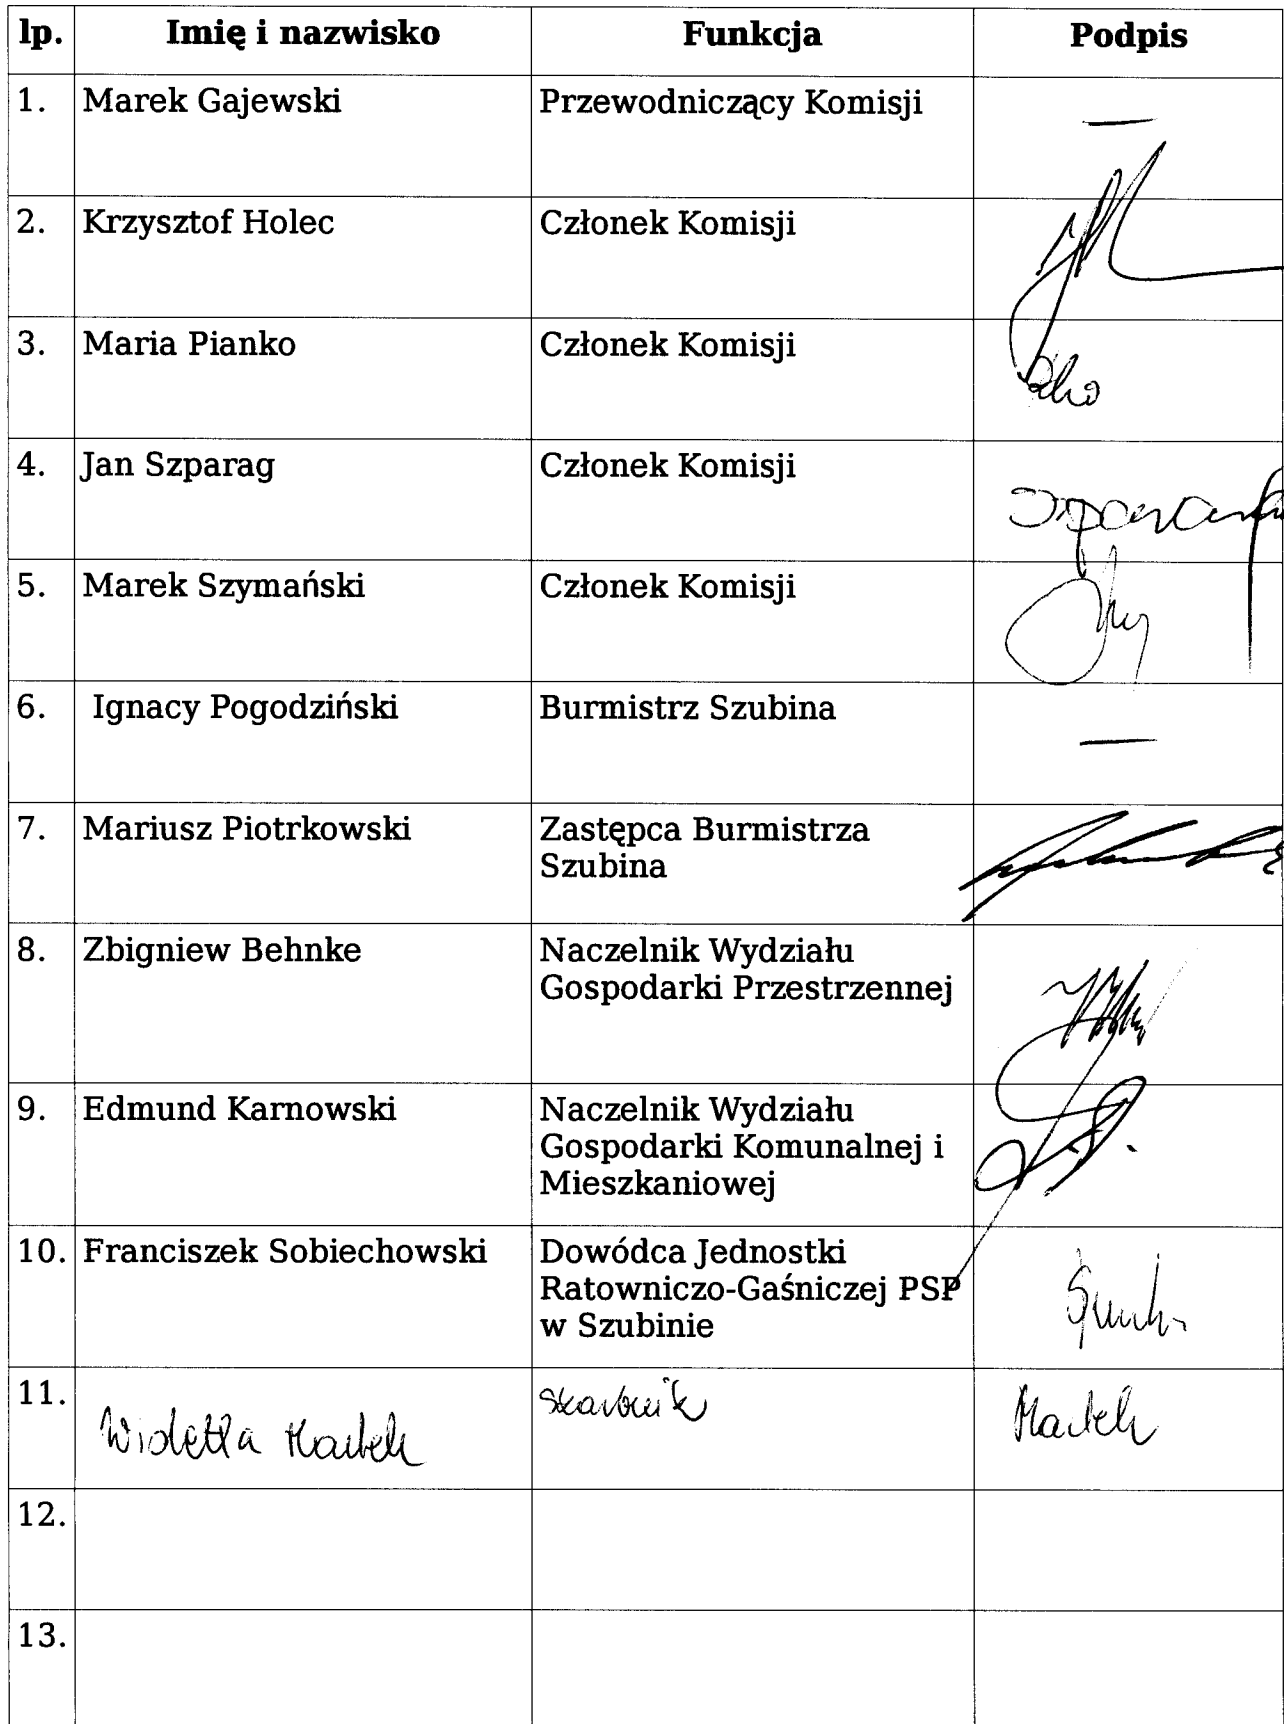 lp. Imię i nazwisko Funkcja Podpis
1. Marek Gajewski Przewodniczący Komisji —
2. Krzysztof Holec Członek Komisji
3. Maria Pianko Członek Komisji
4. Jan Szparag Członek Komisji
5. Marek Szymański Członek Komisji
6. Ignacy Pogodziński Burmistrz Szubina —
7. Mariusz Piotrkowski Zastępca Burmistrza
Szubina
8. Zbigniew Behnke Naczelnik Wydziału
Gospodarki Przestrzennej
9. Edmund Karnowski Naczelnik Wydziału
Gospodarki Komunalnej i
Mieszkaniowej
10. Franciszek Sobiechowski Dowódca Jednostki
Ratowniczo-Gaśniczej PSP
w Szubinie
11. Wioletta skarbnik
12.
13.